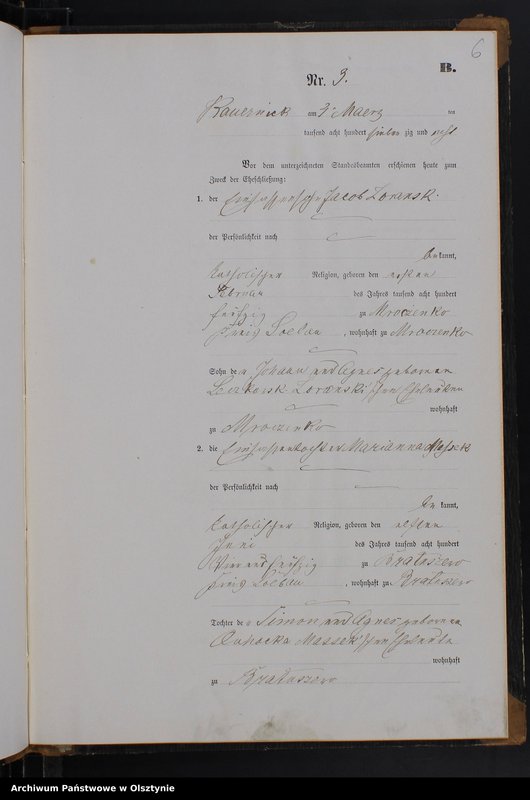 6
B.
Nr. 3.
Kauernick am 3. Maerz ten
tausend acht hundert sieben zig und acht
Vor dem unterzeichneten Standesbeamten erschienen heute zum
Zweck der Eheschließung:
1. der Jacob
der Persönlichkeit nach
bekannt,
katholischer Religion, geboren den ersten
Februar des Jahres tausend acht hundert
fünfzig zu Mroczenko
Kreis Loebau, wohnhaft zu Mroczenko
Sohn de r Johann und Agnes geborenen
wohnhaft
zu Mroczenko
2. die Marianna Massek
der Persönlichkeit nach
be kannt,
katholischer Religion, geboren den elften
Juni des Jahres tausend acht hundert
vier und fünfzig zu Brattuszewo
Kreis Loebau, wohnhaft zu Brattuszewo
Tochter de r Simon und Agnes geborenen
Massek
wohnhaft
zu Brattuszewo
Archiwum Państwowe w Olsztynie